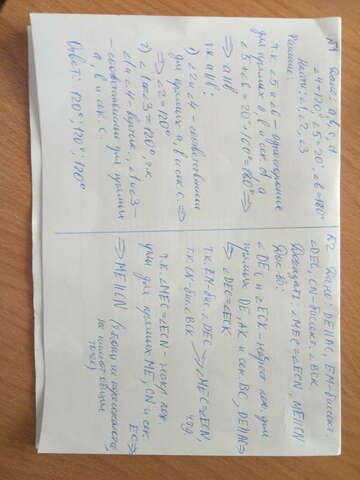 №1 Дано: a, b, c, d
∠4=120°, ∠5=20°, ∠6=160°
Найти: ∠1, ∠2, ∠3
Решение:
т.к. ∠5 и ∠6 - односторонние
для прямых a, b и сек. d, а
∠5+∠6=20°+160°=180° ⇒
⇒ a∥b
1) ∠2 и ∠4 - соответственные
для прямых a, b и сек c. ⇒
т.к. a∥b,
⇒ ∠2=120°
2) ∠1=∠3=120°, т.к.
∠1 и ∠4 - вертик., ∠1 и ∠3 -
- соответственные для прямых
a, b и сек. c.
Ответ: 120°; 120°; 120°
№2 Дано: DE∥AC, EM-биссект.
∠DEC, CN-биссект. ∠BCK
Доказать: ∠MEC=∠ECN, ME∥CN
Док-во:
∠DEC и ∠ECK - накрест леж. для
прямых DE, AK и сек. BC, DE∥AC ⇒
⇒ ∠DEC=∠ECK
т.к. EM-бис. ∠DEC
т.к. CN-бис. ∠BCK ⇒ ∠MEC=∠ECN,
ч.т.д.
т.к. ∠MEC=∠ECN - накр. леж.
для прямых ME, CN и сек.
EC ⇒
⇒ ME∥CN
не имеют общих
точек)